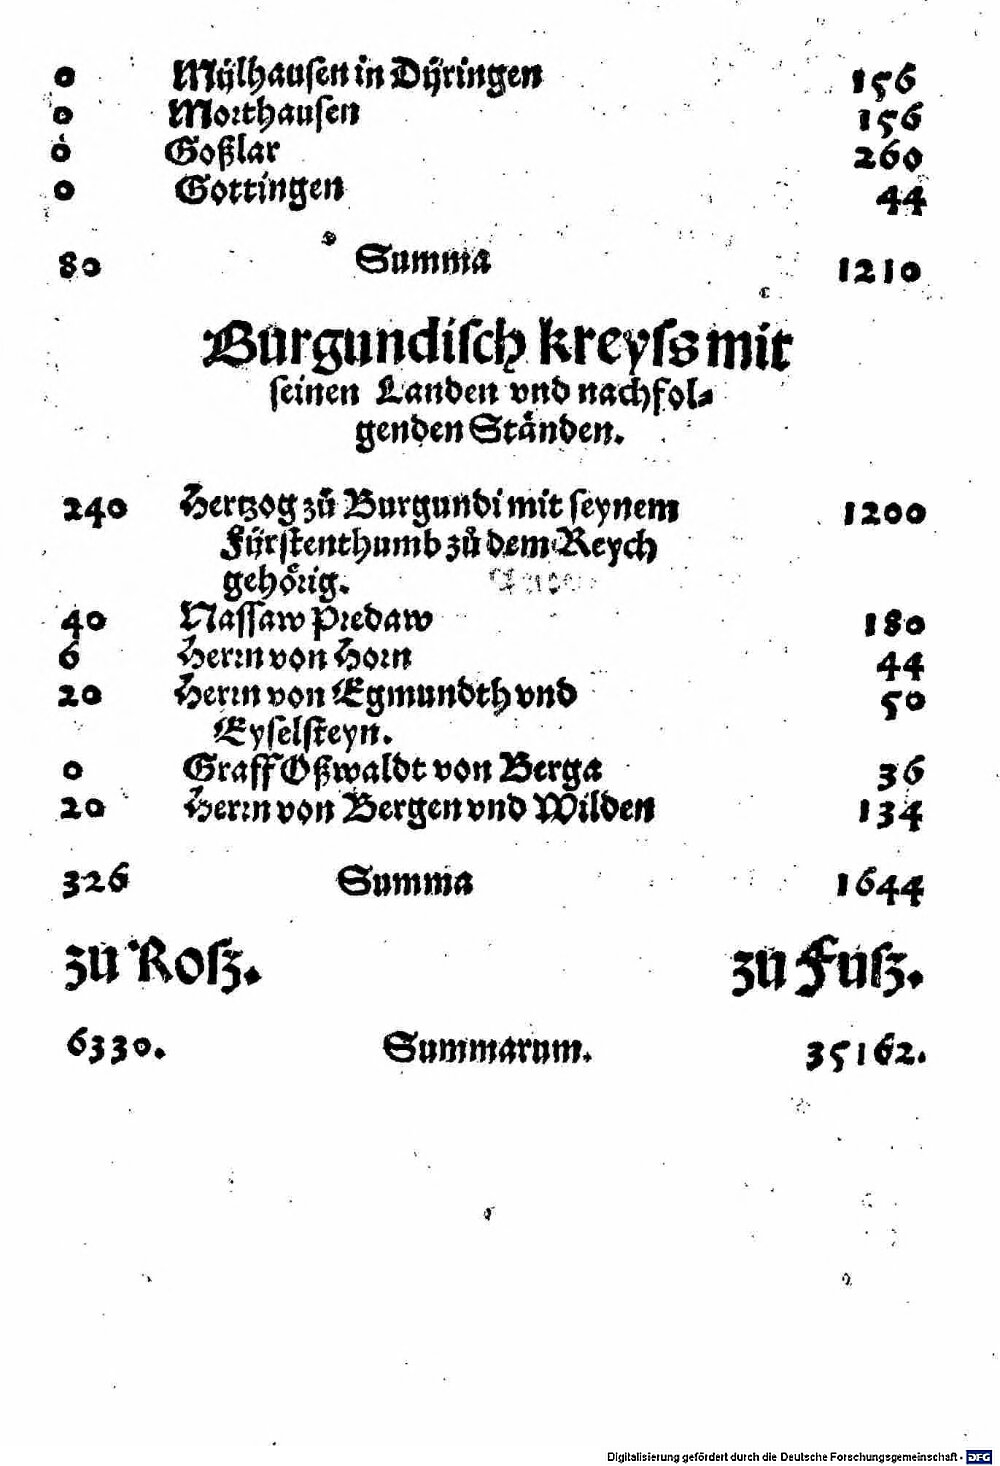 0 Mülhausen in Düringen 156
0 Morthausen 156
0 Goßlar 260
0 Gottingen 44
80 Summa 1210
Burgundisch kreyss mit
seinen Landen vnd nachfol⸗
genden Ständen.
240 Hertzog zů Burgundi mit seynem 1200
Fürstenthumb zů dem Reych
gehörig.
40 Nassaw Predaw 180
6 Herrn von Horn 44
20 Herrn von Egmundth vnd 50
Eyselsteyn.
0 Graff Oßwaldt von Berga 36
20 Herrn von Bergen vnd Wilden 134
326 Summa 1644
zu Rosz. zu Fusz.
6330. Summarum. 35162.
Digitalisierung gefördert durch die Deutsche Forschungsgemeinschaft - DFG